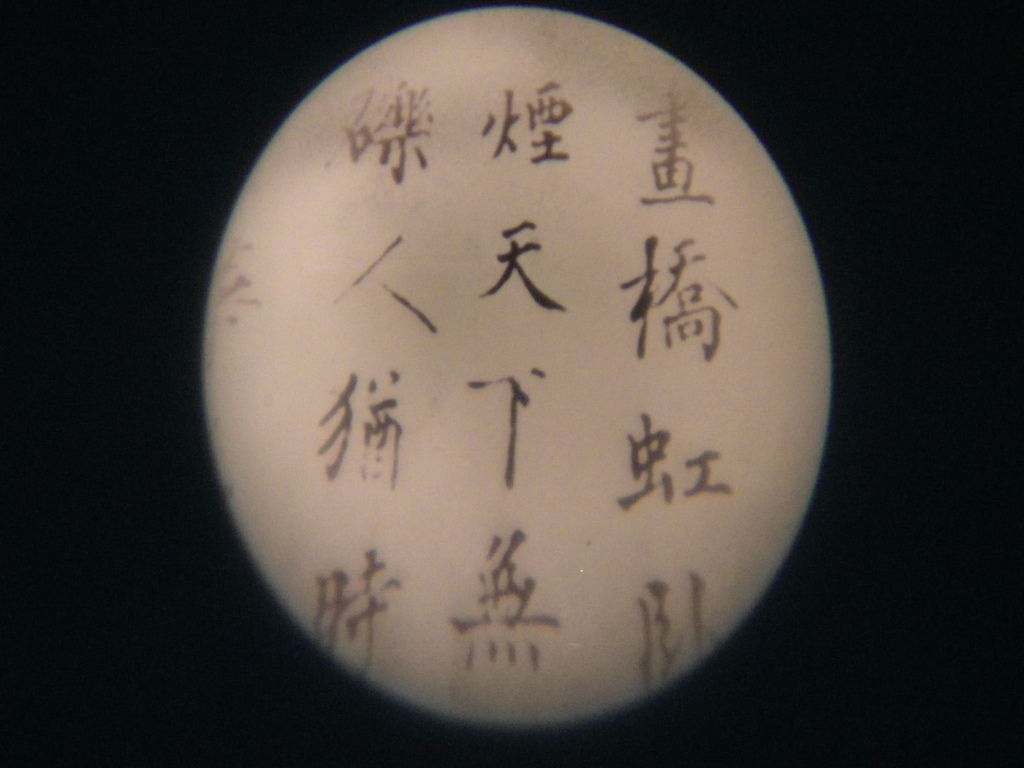 畫橋虹臥
煙天下無
礫人猶時